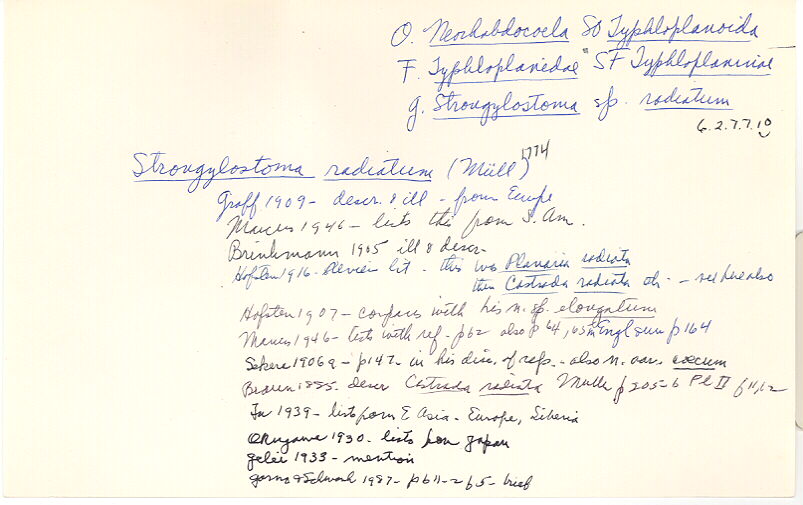 O. Neorhabdocoela SO Typhloplanoida
F. Typhloplanidae SF Typhloplaninae
g. Strongylostoma sp. radiatum
6.2.7.7.10
Strongylostoma radiatum (Müll) 1774
Graff 1909 - descr. & ill - from Europe
Marcus 1946 - lists this from S. Am.
Brinkmann 1905 ill & descr
Hofsten 1916 - lit - this was Planaria radiata then Castrada radiata etc. - see here also
Hofsten 1907 - compares with his n. sp. elongatum
Marcus 1946 - lists with ref - p62 also p 64, 65 in Engl sum p 164
Sekera 1906a - p147 - in his disc. of reps. - also n. var. caecum
Braun 1885 descr Castrada radiata Müller p 205-6 Pl II f 11,12
1939 - lists from E Asia - Europe, Siberia
Okugawa 1930 - lists from Japan
Gelei 1933 - mention
1987 - p 611-2 b5 - brief